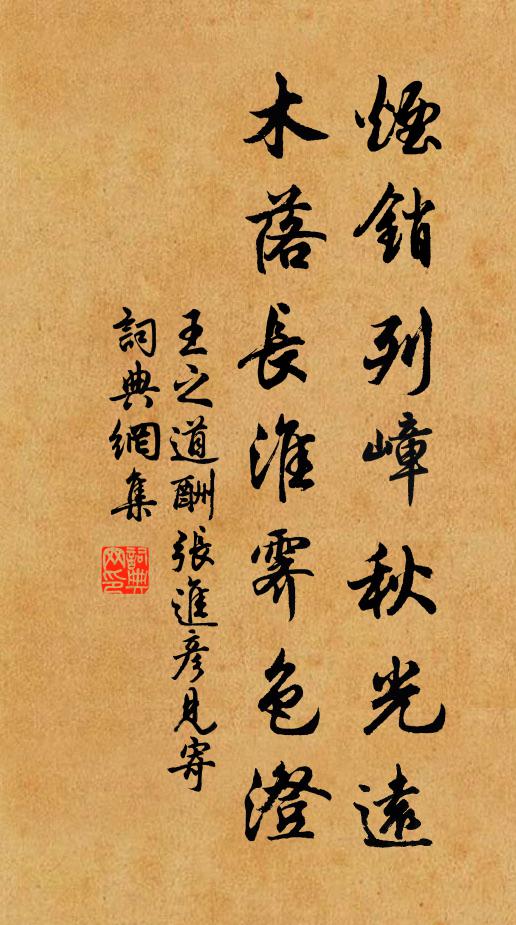 煙銷列嶂秋光遠
木落長淮霽色澄
王之道酬張進彥見寄
詞典網集
詞典網印